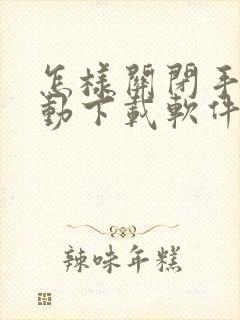 怎樣關閉手
動下載軟件
辣味年糕